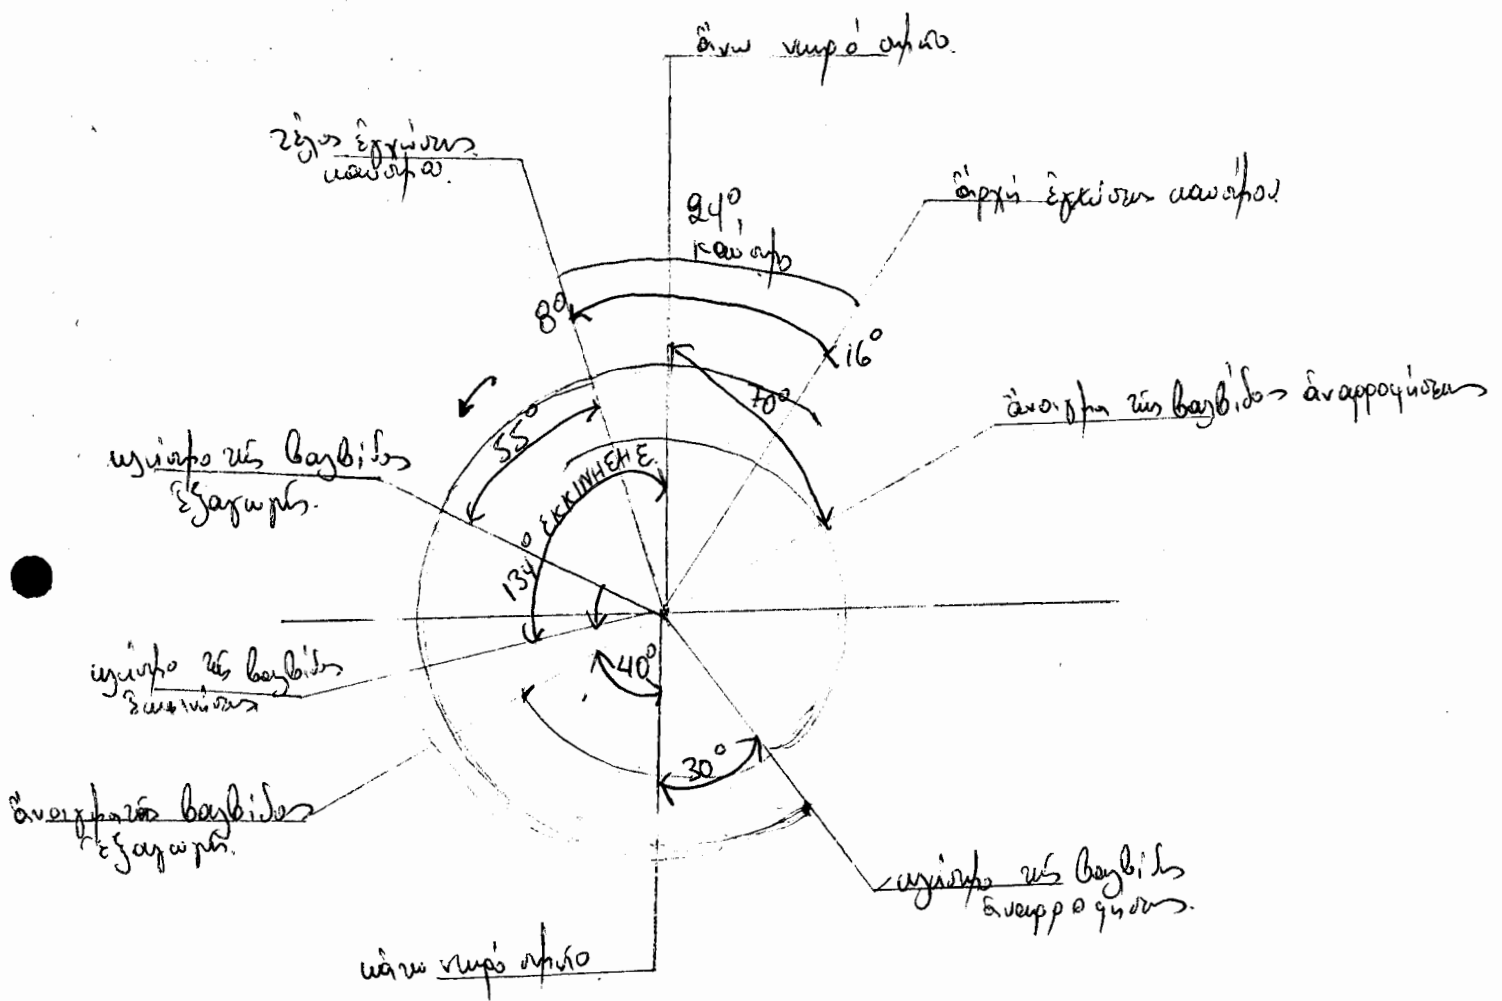 ἄνω νεκρό σημεῖο.
τέλος ἐγχύσεως
καυσίμου.
24°,
καύσιμο
ἀρχή ἐγχύσεως καυσίμου
8°
16°
70°
ἄνοιγμα τῆς βαλβίδος ἀναρροφήσεως
55°
κλείσιμο τῆς βαλβίδος
ἐξαγωγῆς.
134° ΕΚΚΙΝΗΣΗΣ.
κλείσιμο τῆς βαλβίδος
ἐκκινήσεως
40°
30°
ἄνοιγμα τῆς βαλβίδος
ἐξαγωγῆς.
κλείσιμο τῆς βαλβίδος
ἀναρροφήσεως.
κάτω νεκρό σημεῖο